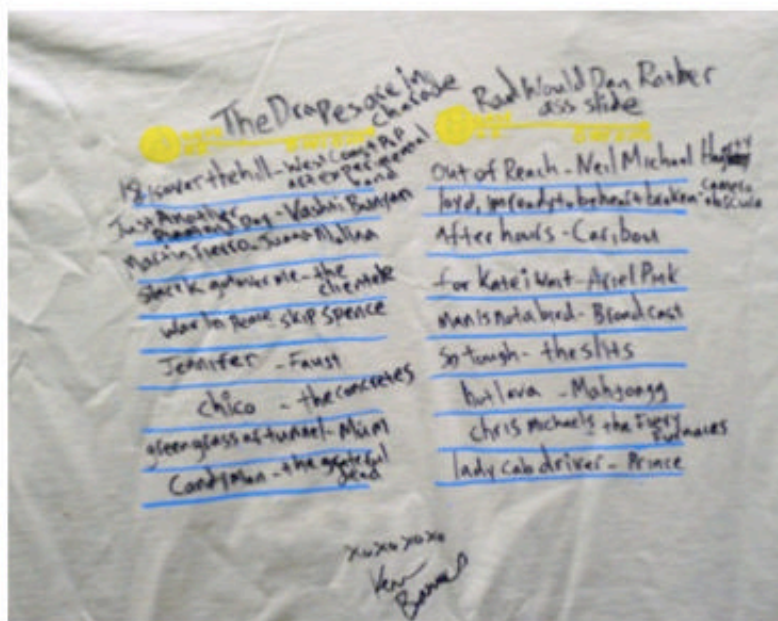 The Drapes are in
charade
1st is over the hill - West Coast Pop
art experimental
band
Just Another
Diamond Day - Vashti Bunyan
Martin Fierro - Juana Molina
got over me - the
clientele
War in Peace - skip Spence
Jennifer - Faust
chico - the concretes
green grass of tunnel - Múm
Candyman - the grateful
dead
Rad Would Dan Rather
ass slide
Out of Reach - Neil Michael
loyd, im ready to be heart broken - camera
obscura
After hours - Caribou
for Kate i wait - Ariel Pink
man is not a bird - Broadcast
So tough - the slits
hot lava - Mahjongg
chris michaels the Fiery
Furnaces
lady cab driver - Prince
xoxoxoxo